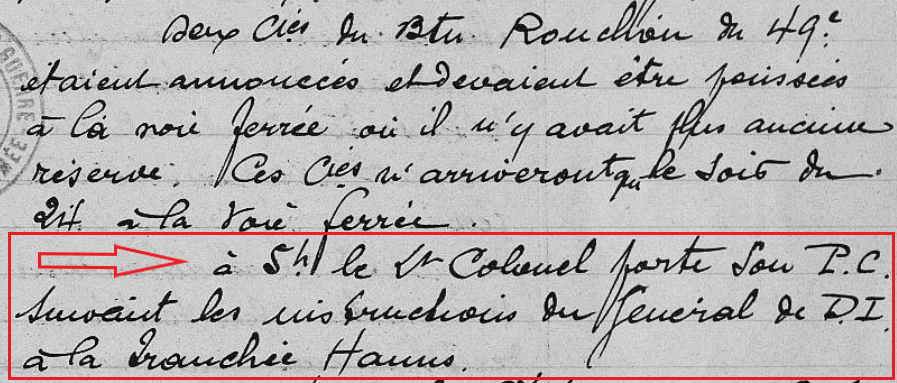 Deux Cies du Btn. Rouchon du 49e
étaient annoncées et devaient être poussées
à la voie ferrée où il n'y avait plus aucune
réserve. Ces Cies n'arriveront que le soir du
24 à la voie ferrée.
à 5h le Lt Colonel porte son P.C.
suivant les instructions du Général de D.I.
à la Tranchée Hanns.
GUERRE